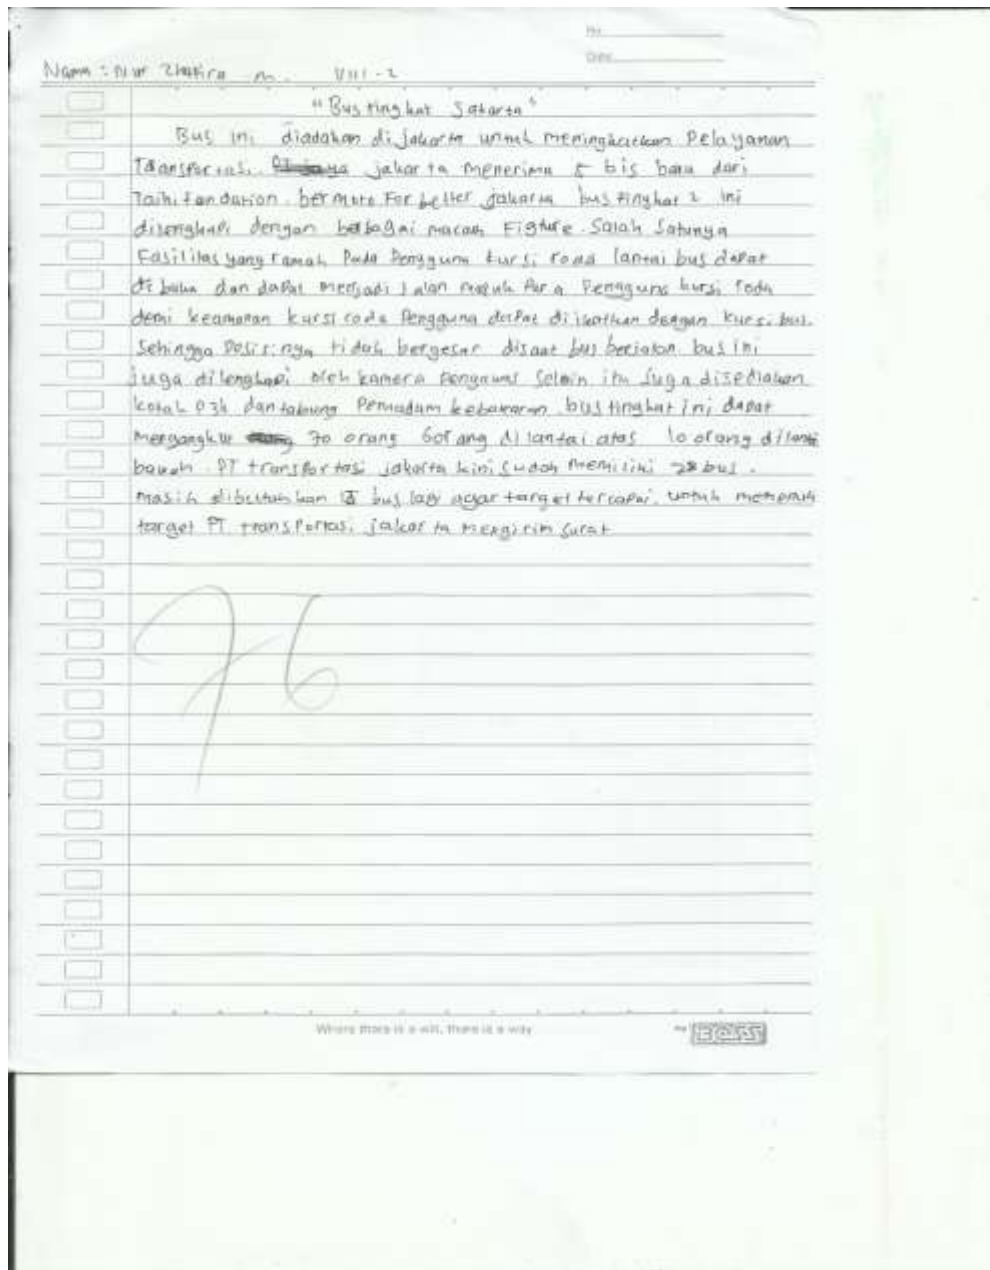 No
Date
Nama : Nur Zhafira m. VIII-2
"Bus tingkat Jakarta"
Bus ini diadakan di jakarta untuk meningkatkan Pelayanan
Transportasi. jakarta menerima 5 bis baru dari
Taihi fondation bermoto For better jakarta bus tingkat 2 ini
dilengkapi dengan berbagai macam Figture. Salah Satunya
Fasilitas yang ramah Pada Pengguna kursi roda lantai bus dapat
di buka dan dapat menjadi jalan masuk Para Pengguna kursi roda
demi keamanan kursi roda Pengguna dapat di ikatkan dengan kursi bus.
Sehingga Posisinya tidak bergeser disaat bus berjalan. bus ini
juga dilengkapi oleh kamera pengawas Selain itu juga disediakan
kotak P3k dan tabung Pemadam kebakaran. bus tingkat ini dapat
mengangkut 70 orang 60rang di lantai atas 10 orang dilantai
bawah. PT transportasi jakarta kini sudah memiliki 28 bus.
masih dibutuhkan bus lagi agar target tercapai. untuk memenuhi
target PT transportasi jakarta mengirim surat
76
Where there is a will, there is a way
BOSS